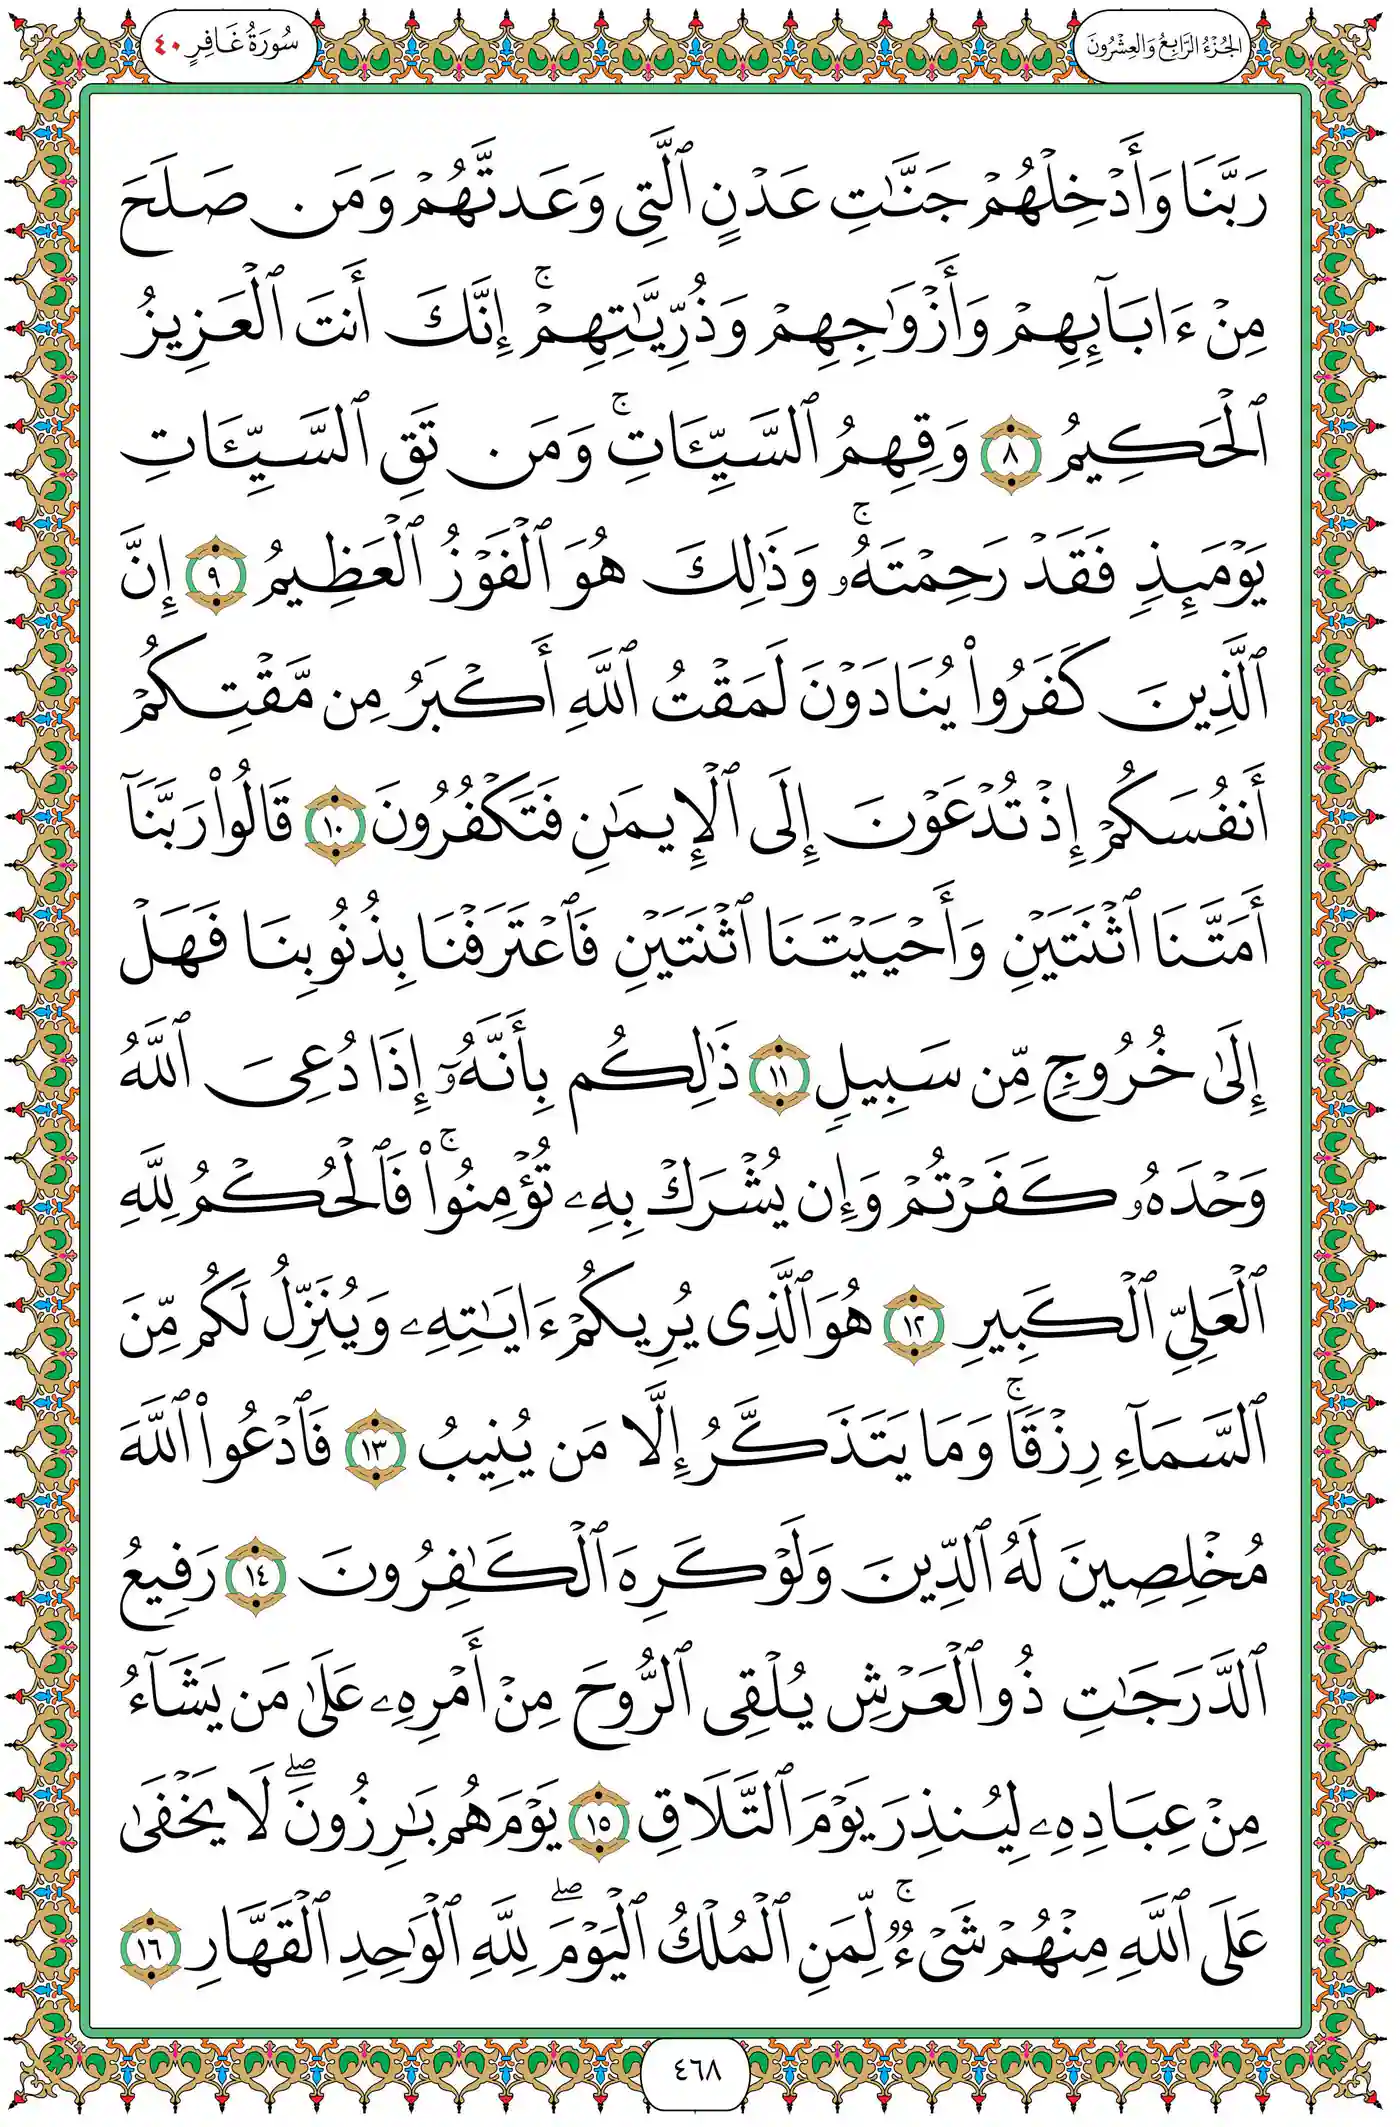 الجُزْءُ الرَّابِعُ وَالعِشْرُونَ
سُورَةُ غَافِرٍ ٤٠
رَبَّنَا وَأَدْخِلْهُمْ جَنَّٰتِ عَدْنٍ ٱلَّتِى وَعَدتَّهُمْ وَمَن صَلَحَ
مِنْ ءَابَآئِهِمْ وَأَزْوَٰجِهِمْ وَذُرِّيَّٰتِهِمْ ۚ إِنَّكَ أَنتَ ٱلْعَزِيزُ
ٱلْحَكِيمُ ٨ وَقِهِمُ ٱلسَّيِّـَٔاتِ ۚ وَمَن تَقِ ٱلسَّيِّـَٔاتِ
يَوْمَئِذٍ فَقَدْ رَحِمْتَهُۥ ۚ وَذَٰلِكَ هُوَ ٱلْفَوْزُ ٱلْعَظِيمُ ٩ إِنَّ
ٱلَّذِينَ كَفَرُوا۟ يُنَادَوْنَ لَمَقْتُ ٱللَّهِ أَكْبَرُ مِن مَّقْتِكُمْ
أَنفُسَكُمْ إِذْ تُدْعَوْنَ إِلَى ٱلْإِيمَٰنِ فَتَكْفُرُونَ ١٠ قَالُوا۟ رَبَّنَآ
أَمَتَّنَا ٱثْنَتَيْنِ وَأَحْيَيْتَنَا ٱثْنَتَيْنِ فَٱعْتَرَفْنَا بِذُنُوبِنَا فَهَلْ
إِلَىٰ خُرُوجٍ مِّن سَبِيلٍ ١١ ذَٰلِكُم بِأَنَّهُۥٓ إِذَا دُعِىَ ٱللَّهُ
وَحْدَهُۥ كَفَرْتُمْ وَإِن يُشْرَكْ بِهِۦ تُؤْمِنُوا۟ ۚ فَٱلْحُكْمُ لِلَّهِ
ٱلْعَلِىِّ ٱلْكَبِيرِ ١٢ هُوَ ٱلَّذِى يُرِيكُمْ ءَايَٰتِهِۦ وَيُنَزِّلُ لَكُم مِّنَ
ٱلسَّمَآءِ رِزْقًا ۚ وَمَا يَتَذَكَّرُ إِلَّا مَن يُنِيبُ ١٣ فَٱدْعُوا۟ ٱللَّهَ
مُخْلِصِينَ لَهُ ٱلدِّينَ وَلَوْ كَرِهَ ٱلْكَٰفِرُونَ ١٤ رَفِيعُ
ٱلدَّرَجَٰتِ ذُو ٱلْعَرْشِ يُلْقِى ٱلرُّوحَ مِنْ أَمْرِهِۦ عَلَىٰ مَن يَشَآءُ
مِنْ عِبَادِهِۦ لِيُنذِرَ يَوْمَ ٱلتَّلَاقِ ١٥ يَوْمَ هُم بَٰرِزُونَ ۖ لَا يَخْفَىٰ
عَلَى ٱللَّهِ مِنْهُمْ شَىْءٌ ۚ لِّمَنِ ٱلْمُلْكُ ٱلْيَوْمَ ۖ لِلَّهِ ٱلْوَٰحِدِ ٱلْقَهَّارِ ١٦
٤٦٨